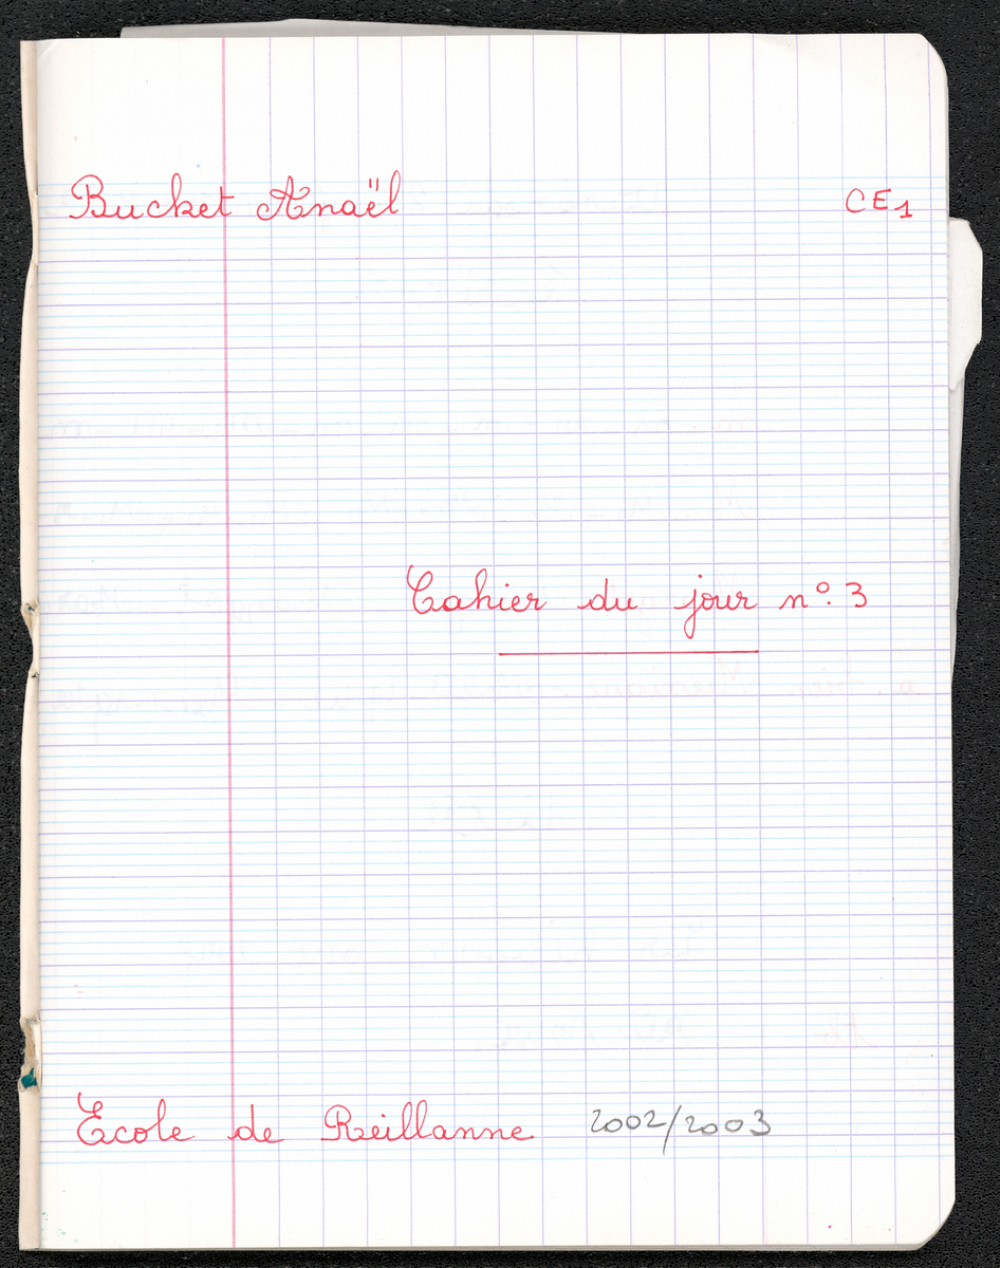 Bucket Anaël CE1
Cahier du jour n°. 3
Ecole de Reillanne 2002/2003